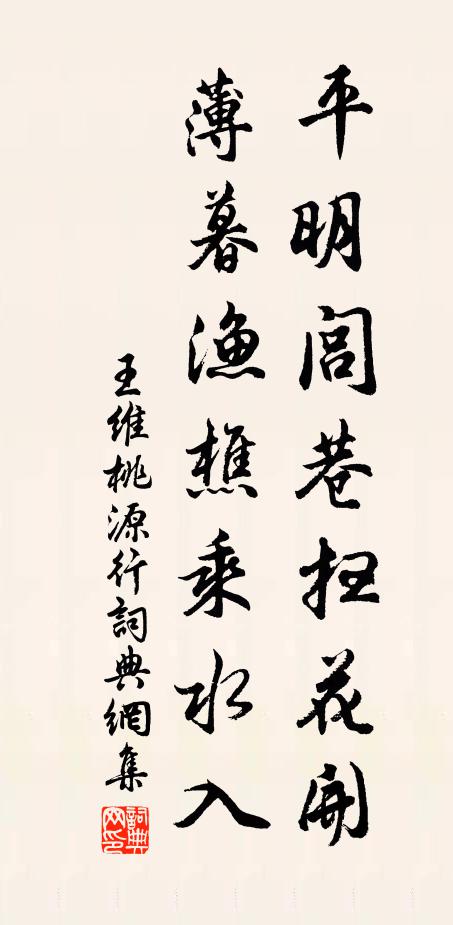 平明閭巷扫花開
薄暮漁樵乘水入
王維桃源行詞典網集
詞典网印